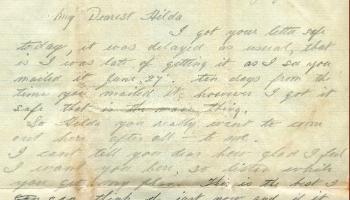 My Dearest Hilda
I got your letter safe
today, it was delayed as usual, that
is I was late of getting it as I see you
mailed it June 27. ten days from the
time you mailed it, however I got it
safe that is the main thing.
So Hilda you really want to come
out here after all
I can't tell you dear how glad I feel
I want you here, so listen while
you get my plan. This is the best I
can think of just now and if it